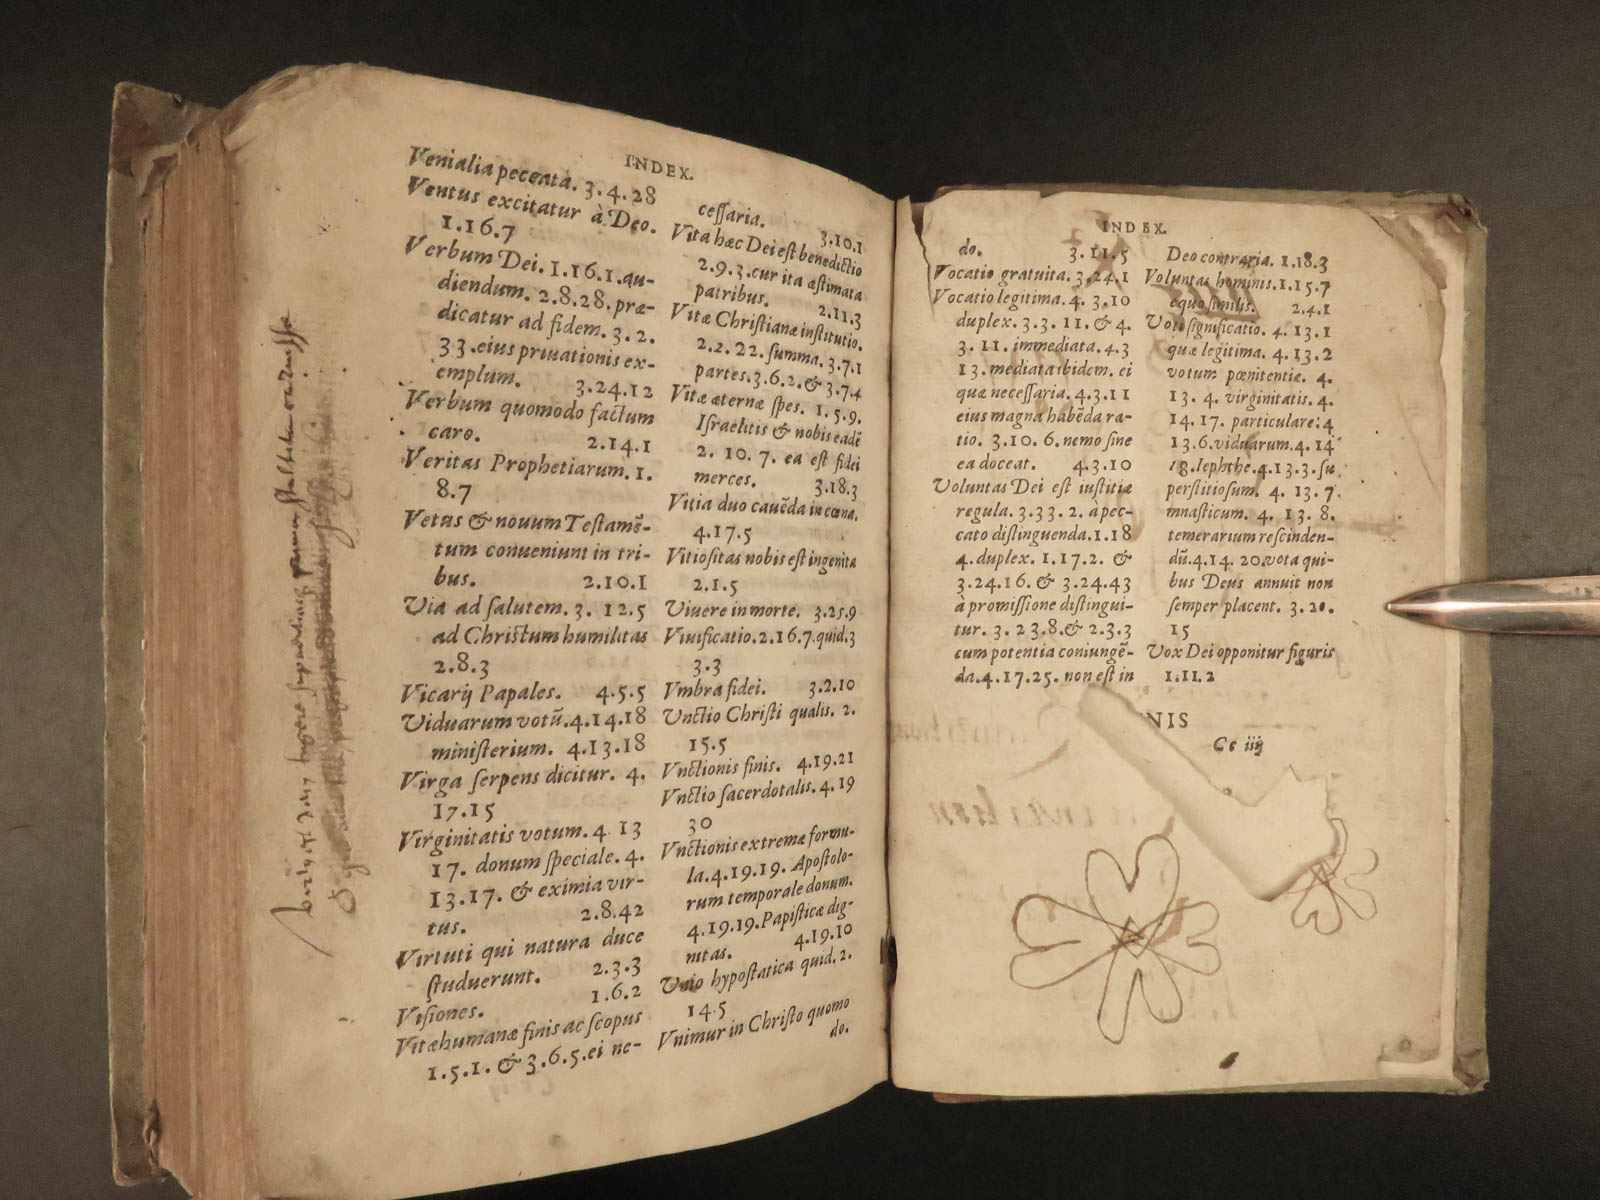 INDEX.
Venialia peccata. 3.4.28
Ventus excitatur à Deo.
1.16.7
Verbum Dei. 1.16.1. au-
diendum. 2.8.28. præ-
dicatur ad fidem. 3.2.
33. eius priuationis ex-
emplum. 3.24.12
Verbum quomodo factum
caro. 2.14.1
Veritas Prophetiarum. 1.
8.7
Vetus & nouum Testamē-
tum conueniunt in tri-
bus. 2.10.1
Via ad salutem. 3. 12.5
ad Christum humilitas
2.8.3
Vicarij Papales. 4.5.5
Viduarum votū. 4.14.18
ministerium. 4.13.18
Virga serpens dicitur. 4.
17.15
Virginitatis votum. 4 13
17. donum speciale. 4.
13.17. & eximia vir-
tus. 2.8.42
Virtuti qui natura duce
studuerunt. 2.3.3
Visiones. 1.6.2
Vitæ humanæ finis ac scopus
1.5.1. & 3.6.5. ei ne-
cessaria. 3.10.1
Vita hæc Dei est benedictio
2.9.3. cur ita æstimata
patribus. 2.11.3
Vitæ Christianæ institutio.
2.2.22. summa. 3.7.1
partes. 3.6.2. & 3.7.4
Vitæ æternæ spes. 1.5.9.
Israelitis & nobis eadē
2. 10. 7. ea est fidei
merces. 3.18.3
Vitia duo cauēda in cœna.
4.17.5
Vitiositas nobis est ingenita
2.1.5
Viuere in morte. 3.25.9
Viuificatio. 2.16.7. quid. 3
3.3
Vmbra fidei. 3.2.10
Vnctio Christi qualis. 2.
15.5
Vnctionis finis. 4.19.21
Vnctio sacerdotalis. 4.19
30
Vnctionis extremæ formu-
la. 4.19.19. Apostolo-
rum temporale donum.
4.19.19. Papisticæ dig-
nitas. 4.19.10
Vnio hypostatica quid. 2.
14.5
Vnimur in Christo quomo
do.
INDEX.
do. 3.11.5
Vocatio gratuita. 3.24.1
Vocatio legitima. 4. 3.10
duplex. 3.3. 11. & 4.
3. 11. immediata. 4.3
13. mediata ibidem. ei
quæ necessaria. 4.3.11
eius magna habēda ra-
tio. 3.10.6. nemo sine
ea doceat. 4.3.10
Voluntas Dei est iustitiæ
regula. 3.33.2. à pec-
cato distinguenda. 1.18
4. duplex. 1.17.2. &
3.24.16. & 3.24.43
à promissione distingui-
tur. 3. 23.8. & 2.3.3
cum potentia coniungē-
da. 4.17.25. non est in
Deo contraria. 1.18.3
Voluntas hominis. 1.15.7
equo similis. 2.4.1
Voti significatio. 4. 13.1
quæ legitima. 4. 13.2
votum pœnitentiæ. 4.
13. 4. virginitatis. 4.
14. 17. particulare: 4
13.6. viduarum. 4. 14
18. Iephthe. 4.13.3. su
perstitiosum. 4. 13.7.
mnasticum. 4. 13. 8.
temerarium rescinden-
dū. 4.14. 20. vota qui-
bus Deus annuit non
semper placent. 3. 20.
15
Vox Dei opponitur figuris
1.11.2
NIS
Cc iiij